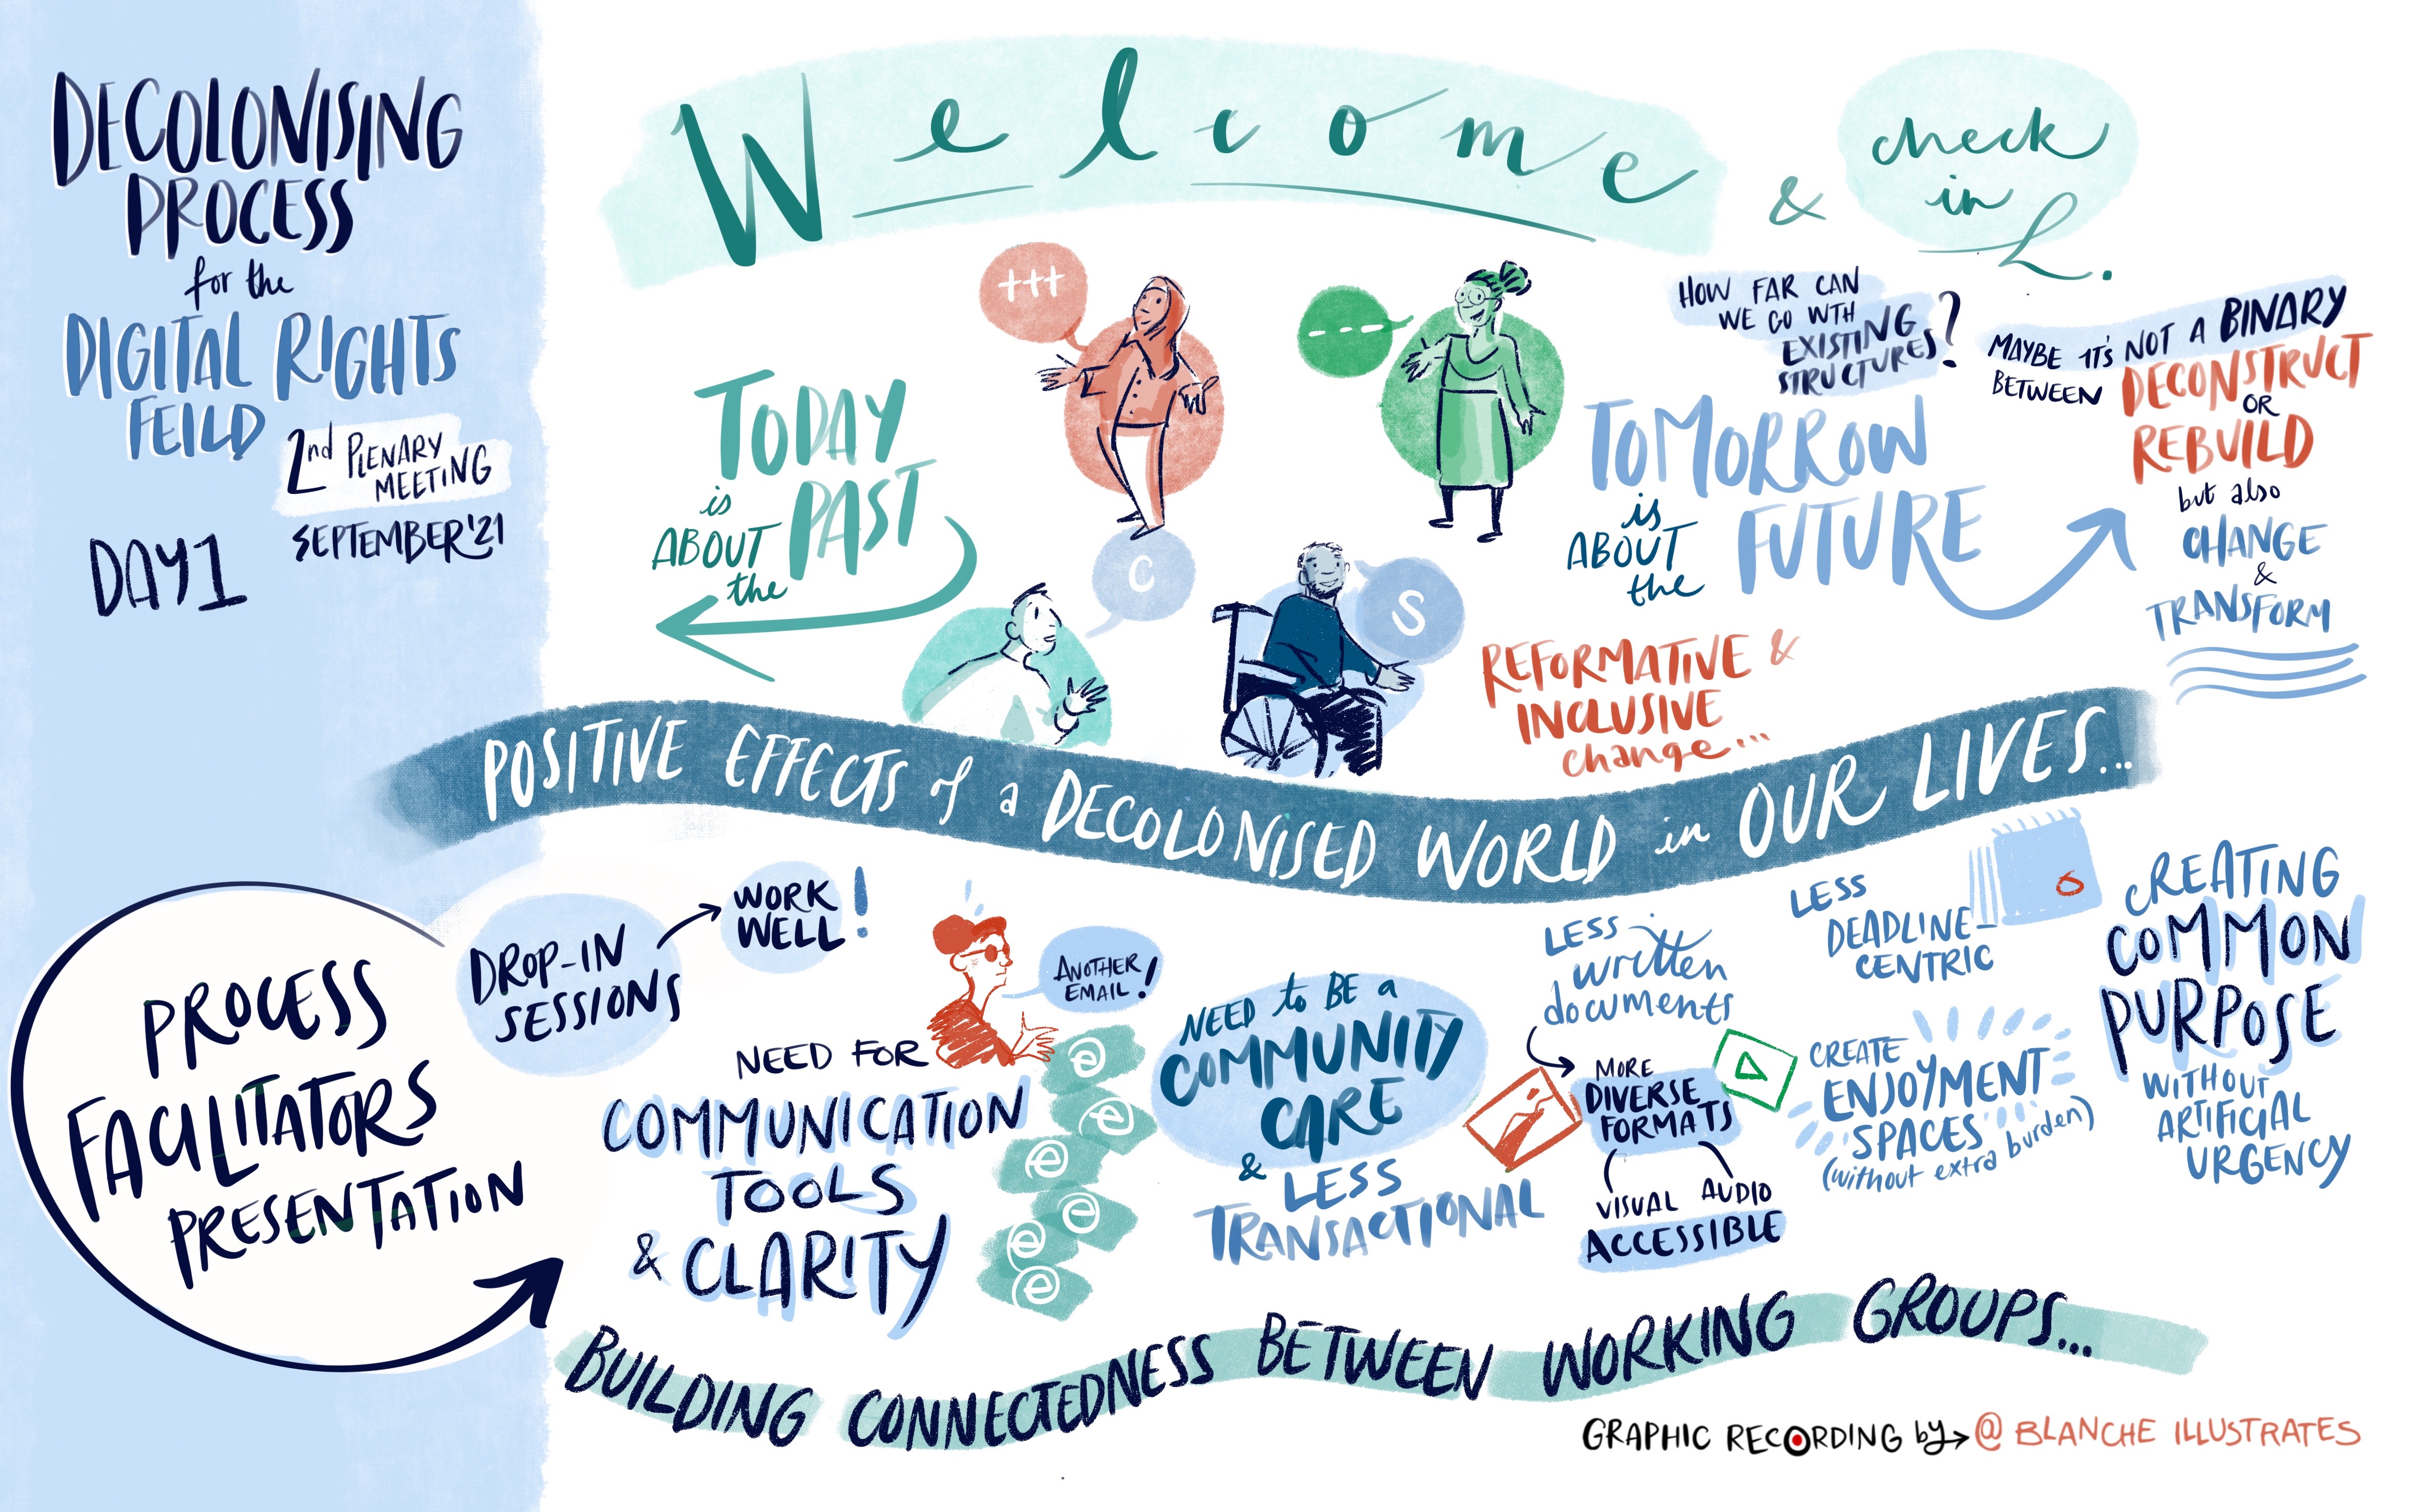 DECOLONISING
PROCESS
for the
DIGITAL RIGHTS
FEILD
2nd PLENARY
MEETING
SEPTEMBER '21
DAY 1
Welcome
&
check
in
+++
---
C
S
TODAY
is
ABOUT
the
PAST
HOW FAR CAN
WE GO WTH
EXISTING
STRUCTURES?
TOMORROW
is
ABOUT
the
FUTURE
MAYBE IT'S NOT A BINARY
BETWEEN DECONSTRUCT
OR
REBUILD
but also
CHANGE
&
TRANSFORM
REFORMATIVE &
INCLUSIVE
change...
POSITIVE EFFECTS of a DECOLONISED WORLD in OUR LIVES...
PROCESS
FACILITATORS
PRESENTATION
DROP-IN
SESSIONS
WORK
WELL!
ANOTHER
EMAIL!
NEED FOR
COMMUNICATION
TOOLS
& CLARITY
e
e
e
e
e
e
NEED to BE a
COMMUNITY
CARE
& LESS
TRANSACTIONAL
LESS
written
documents
MORE
DIVERSE
FORMATS
VISUAL AUDIO
ACCESSIBLE
LESS
DEADLINE-
CENTRIC
CREATE
ENJOYMENT
SPACES
(without extra burden)
CREATING
COMMON
PURPOSE
WITHOUT
ARTIFICIAL
URGENCY
BUILDING CONNECTEDNESS BETWEEN WORKING GROUPS...
GRAPHIC RECORDING by @ BLANCHE ILLUSTRATES